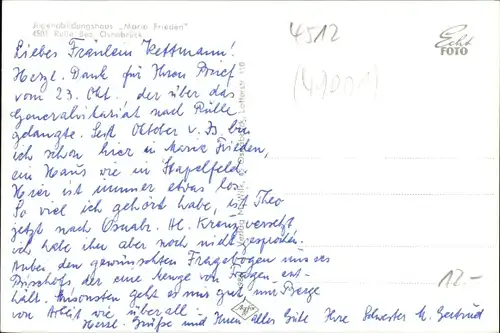 Jugendbildungshaus „Maria Frieden"
4501 Rulle Bez. Osnabrück
4512
(49001)
Echt
FOTO
Liebes Fräulein Kettmann!
Herzl. Dank für Ihren Brief
vom 23. Okt. der über das
Generalvikariat nach Rulle
gelangte. Seit Oktober v. Js. bin
ich schon hier in Maria Frieden,
ein Haus wie in Stapelfeld
Hier ist immer etwas los
So viel ich gehört habe, ist Theo
jetzt nach Osnabr. Hl. Kreuz versetzt
ich habe ihn aber noch nicht gesprochen
Außer den gewünschten Fragebogen uns es
Bischofs der eine Menge von Fragen ent-
hält. Ansonsten geht es mir gut, nur Berge
von Arbeit wie überall -
Herzl. Grüße und Ihnen alles Gute Ihre Schwester M. Gertrud
Verlag
Lotterstr. 110
Agfa
12.-